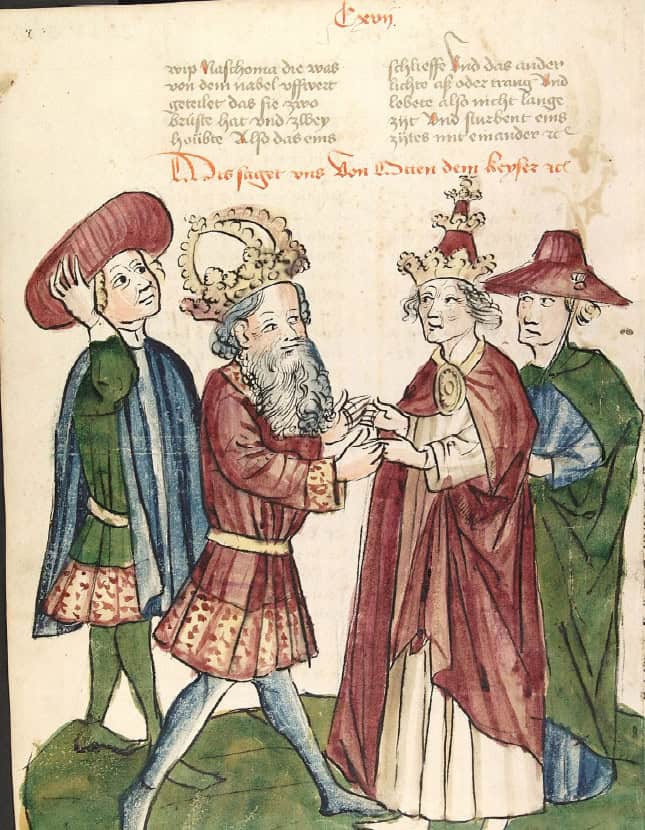 Cxvij.
wip Naschoma die was
von dem nabel vffwert
geteilet das sie zwo
brüste hat vnd zwey
houbte Also das eins
schlieffe Vnd das ander
lichte aß oder trang Vnd
lebete also nicht lange
zijt Vnd sturbent eins
zijtes mit einander ꝛc
Dis saget vns Von Otten dem keyser ꝛc